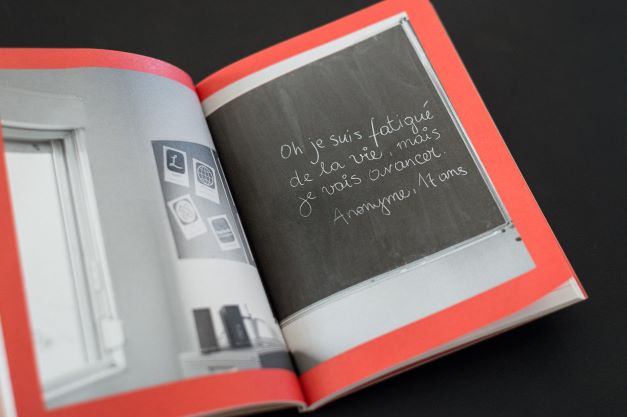 Oh je suis fatigué
de la vie, mais
je vais avancer.
Anonyme, 17 ans